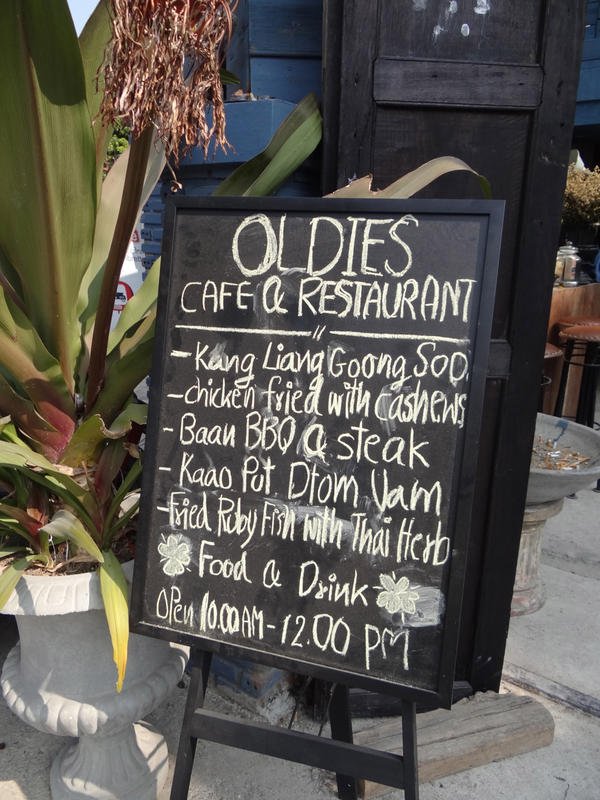 OLDIES
CAFE & RESTAURANT
- Kang Liang Goong Soo
- chicken fried with cashews
- Baan BBQ & steak
- Kaao Put Dtom Yam
- Fried Ruby Fish with Thai Herb
Food & Drink
Open 10.00 AM - 12.00 PM